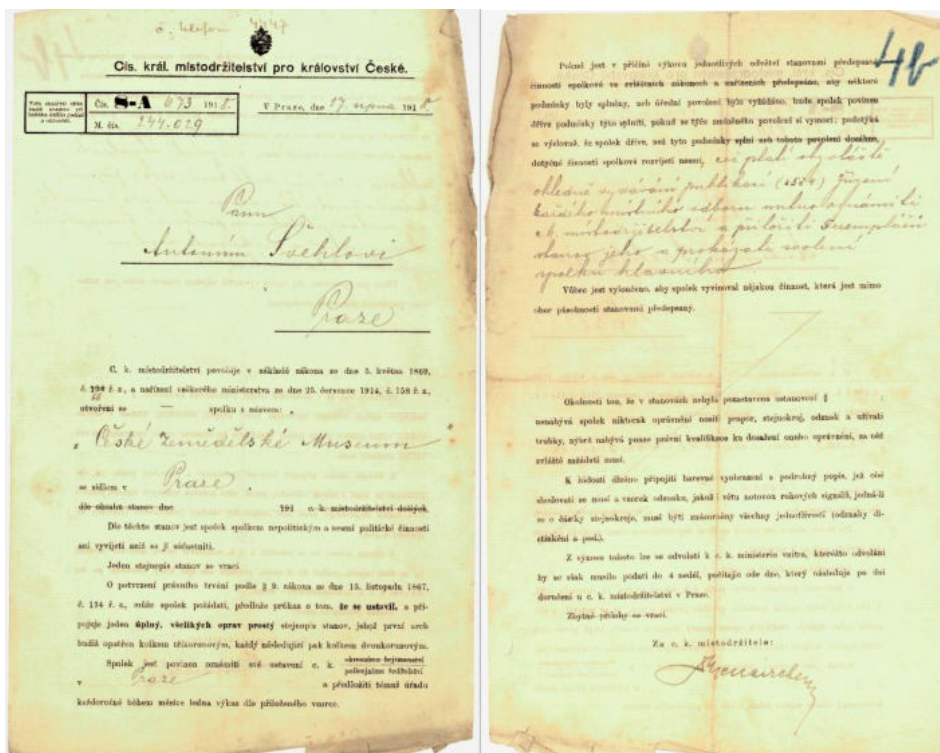 č. telefon 4447
Cís. král. místodržitelství pro království České.
Čís. 8-A 673 1918.
M. čís. 244.029
V Praze, dne 17. srpna 1918.
Panu
Antonínu Švehlovi
Praze
C. k. místodržitelství povoluje v základě zákona ze dne 5. května 1869,
č. 66 ř. z., a nařízení veškerého ministerstva ze dne 25. července 1914, č. 158 ř. z.,
utvoření se — spolku s názvem:
„České zemědělské Museum"
se sídlem v Praze.
dle obsahu stanov dne 191 c. k. místodržitelství došlých.
Dle těchto stanov jest spolek spolkem nepolitickým a nesmí politické činnosti
ani vyvíjeti aniž se jí súčastniti.
Jeden stejnopis stanov se vrací.
O potvrzení právního trvání podle § 9. zákona ze dne 15. listopadu 1867,
č. 134 ř. z., může spolek požádati, předlože průkaz o tom, že se ustavil, a při-
pojuje jeden úplný, všelikých oprav prostý stejnopis stanov, jehož první arch
budiž opatřen kolkem tříkorunovým, každý následující pak kolkem dvoukorunovým.
Spolek jest povinen oznámiti své ustavení c. k. okresnímu hejtmanství
policejnímu ředitelství
v Praze a předložiti témuž úřadu
každoročně během měsíce ledna výkaz dle přiloženého vzorce.
4b
Pokud jest v příčině výkonu jednotlivých odvětví stanovami předepsané
činnosti spolkové ve zvláštních zákonech a nařízeních předepsáno, aby některé
podmínky byly splněny, neb úřední povolení bylo vyžádáno, bude spolek povinen
dříve podmínky tyto splniti, pokud se týče zmíněného povolení si vymoci; podotýká
se výslovně, že spolek dříve, než tyto podmínky splní neb tohoto povolení dosáhne,
dotyčné činnosti spolkové rozvíjeti nesmí, což platí obzvláště
ohledně vydávání publikací Zřízení
každého místního odboru nutno oznámiti
c. k. místodržitelství a přiložiti 5 exemplářů
stanov jeho a prokázati svolení
spolku hlavního
Vůbec jest vyloučeno, aby spolek vyvinoval nějakou činnost, která jest mimo
obor působnosti stanovami předepsaný.
Okolností tou, že v stanovách nebyla pozastavena ustanovení §
nenabývá spolek nikterak oprávnění nositi prapor, stejnokroj, odznak a užívati
trubky, nýbrž nabývá pouze právní kvalifikace ku dosažení onoho oprávnění, za něž
zvláště zažádati musí.
K žádosti dlužno připojiti barevné vyobrazení a podrobný popis, jež cósi
shodovati se musí a vzorek odznaku, jakož i větu notovou rohových signálů, jedná-li
se o částky stejnokroje, musí býti znázorněny všechny jednotlivosti (odznaky di-
stinkční a pod.).
Z výnosu tohoto lze se odvolati k c. k. ministeriu vnitra, kteréžto odvolání
by se však musilo podati do 4 neděl, počítajíc ode dne, který následuje po dni
doručení u c. k. místodržitelství v Praze.
Zbytné přílohy se vrací.
Za c. k. místodržitele: